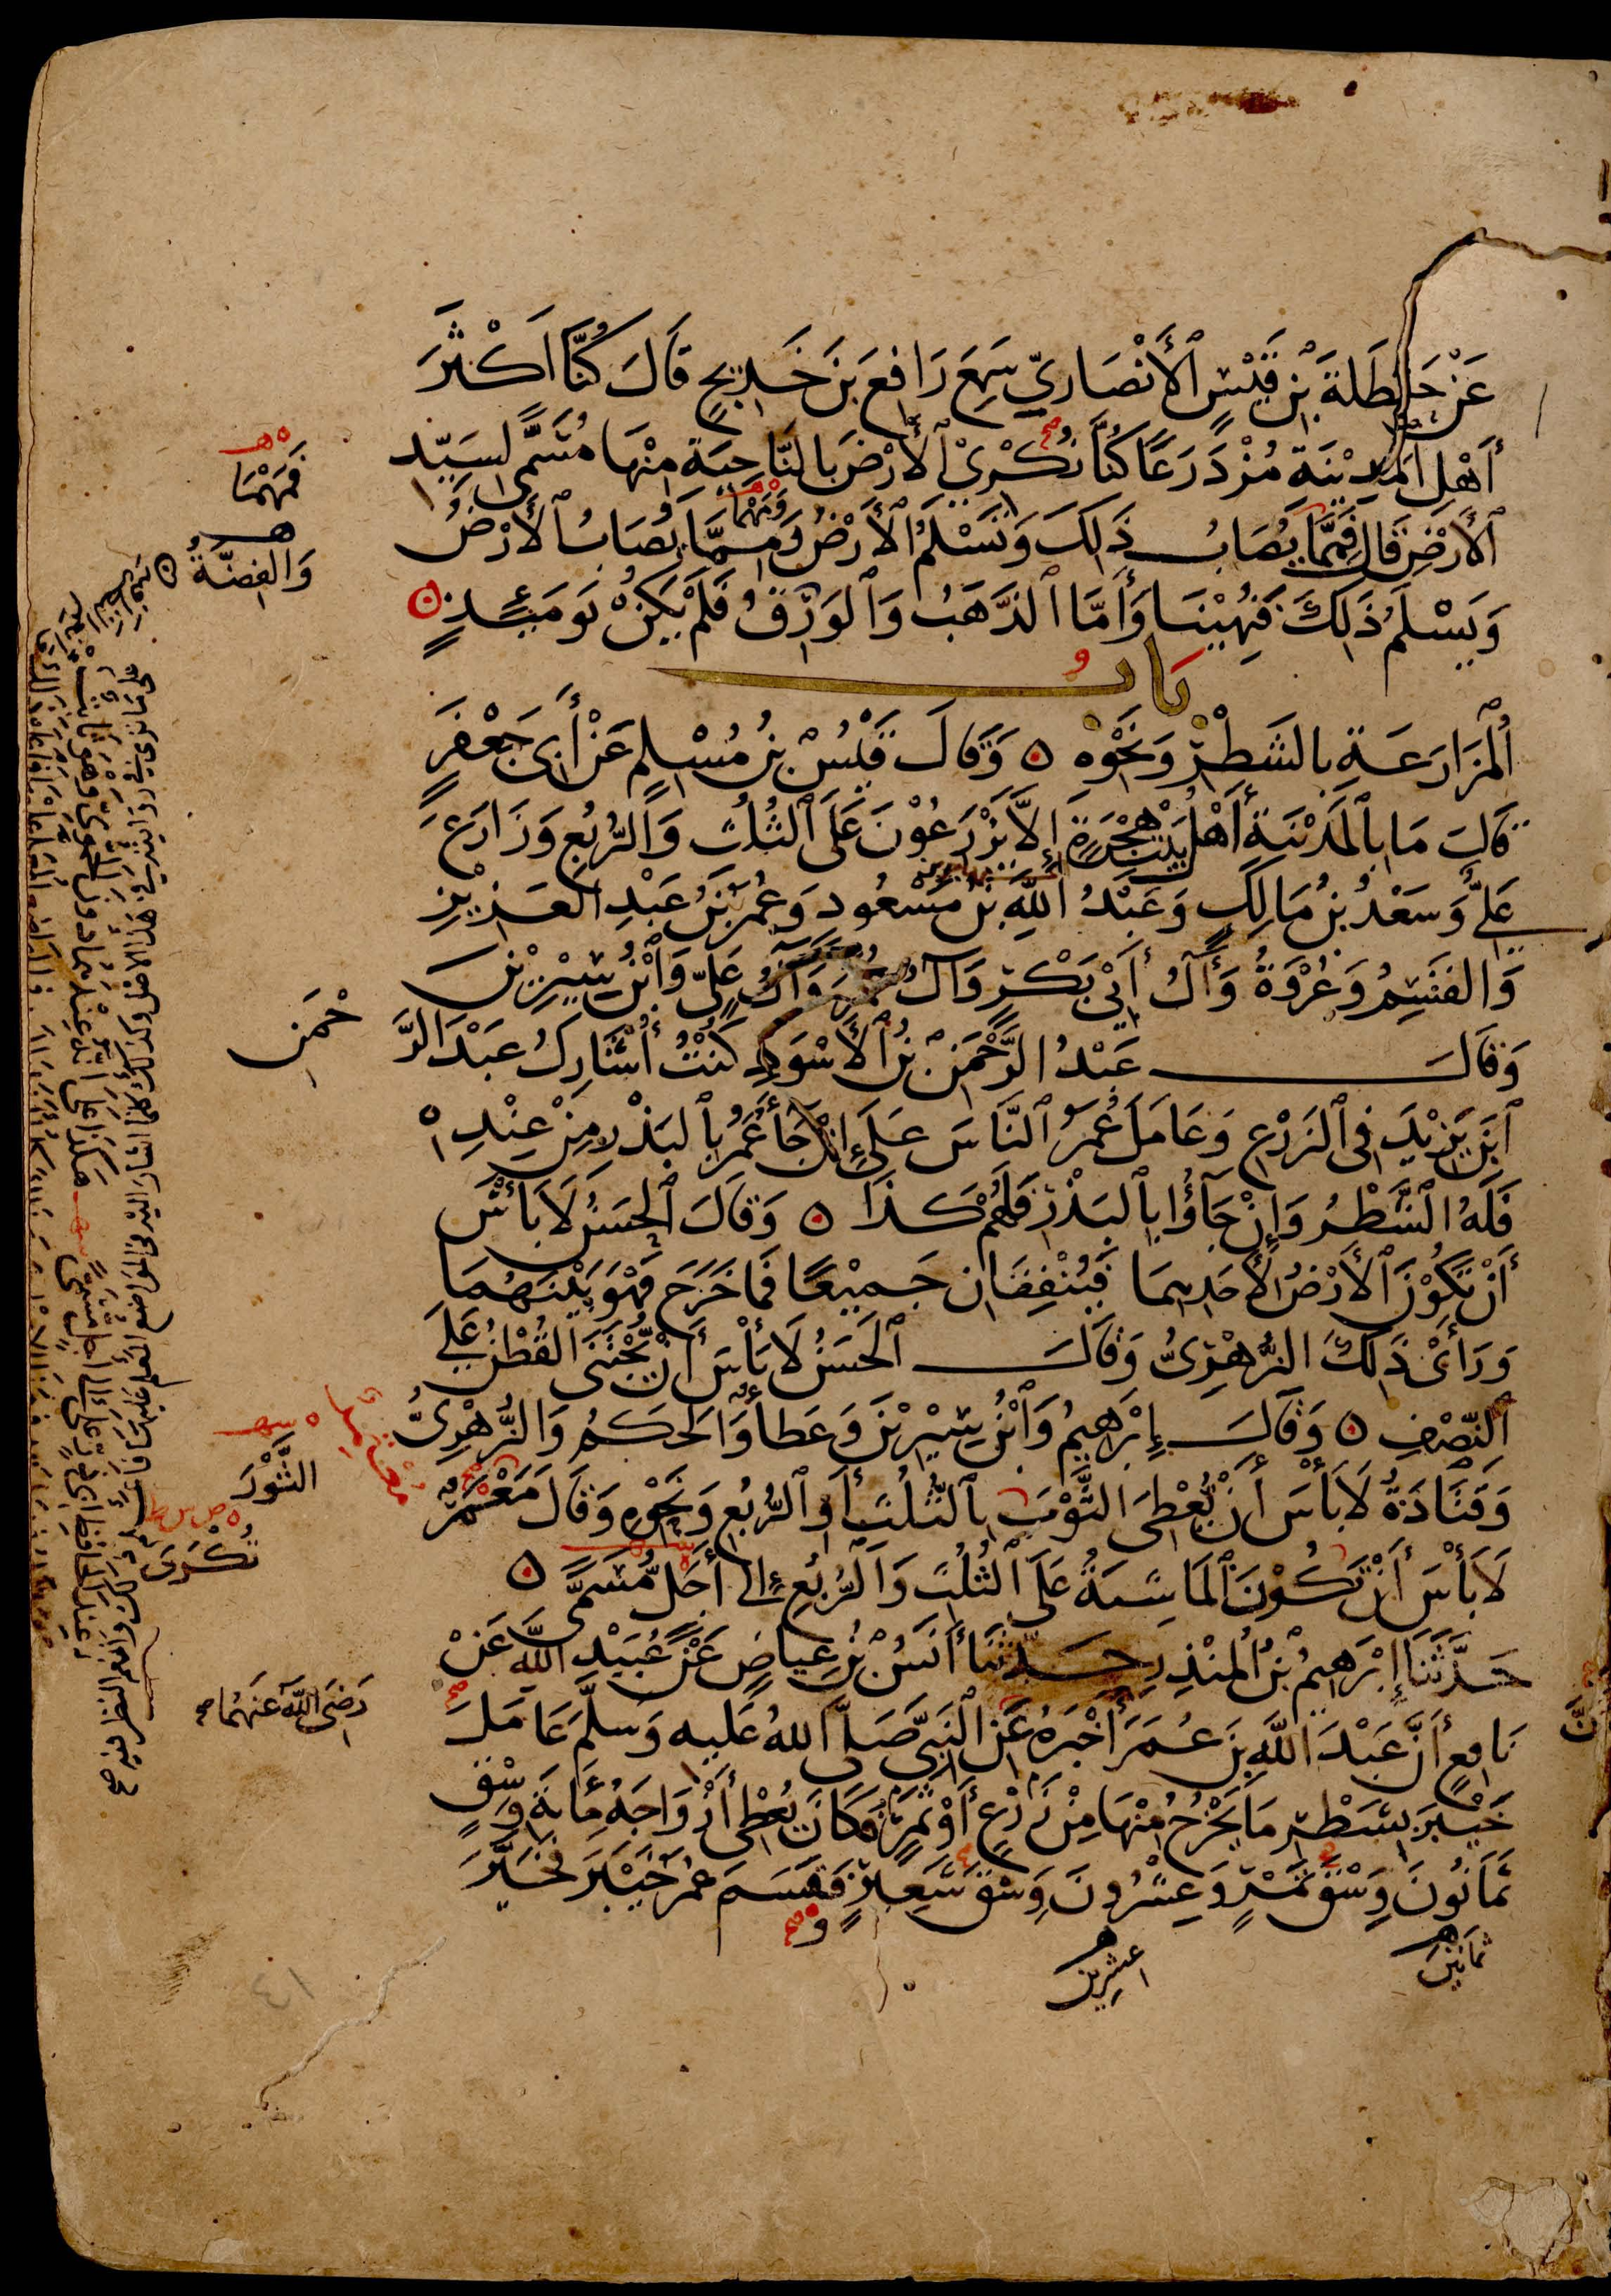 عَنْ حَنْظَلَةَ بْنِ قَيْسٍ الأَنْصَارِيِّ سَمِعَ رَافِعَ بْنَ خَدِيجٍ قَالَ كُنَّا أَكْثَرَ
أَهْلِ الْمَدِيْنَةِ مُزْدَرَعًا كُنَّا نُكْرِيْ الأَرْضَ بِالنَّاحِيَةِ مِنْهَا مُسَمًّى لِسَيِّدِ
الأَرْضِ قَالَ فَمِمَّا يُصَابُ ذَلِكَ وَتَسْلَمُ الأَرْضُ وَمِمَّا يُصَابُ الأَرْضُ
وَيَسْلَمُ ذَلِكَ فَنُهِيْنَا وَأَمَّا الذَّهَبُ وَالْوَرِقُ فَلَمْ يَكُنْ يَوْمَئِذٍ
بَابُ
الْمُزَارَعَةِ بِالشَّطْرِ وَنَحْوِهِ وَقَالَ قَيْسُ بْنُ مُسْلِمٍ عَنْ أَبِي جَعْفَرٍ
قَالَ مَا بِالْمَدِيْنَةِ أَهْلُ بَيْتِ هِجْرَةٍ إِلاَّ يَزْرَعُوْنَ عَلَى الثُّلُثِ وَالرُّبُعِ وَزَارَعَ
عَلِيٌّ وَسَعْدُ بْنُ مَالِكٍ وَعَبْدُ اللَّهِ بْنُ مَسْعُودٍ وَعُمَرُ بْنُ عَبْدِ الْعَزِيْزِ
وَالْقَسِمُ وَعُرْوَةُ وَآلُ أَبِيْ بَكْرٍ وَآلُ عُمَرَ وَآلُ عَلِيٍّ وَابْنُ سِيْرِيْنَ
وَقَالَ عَبْدُ الرَّحْمَنِ بْنُ الأَسْوَدِ كُنْتُ أُشَارِكُ عَبْدَ الرَّحْمَنِ
ابْنَ يَزِيْدَ فِي الزَّرْعِ وَعَامَلَ عُمَرُ النَّاسَ عَلَى إِنْ جَاءَ عُمَرُ بِالْبَذْرِ مِنْ عِنْدِهِ
فَلَهُ الشَّطْرُ وَإِنْ جَاؤُا بِالْبَذْرِ فَلَهُمْ كَذَا وَقَالَ الْحَسَنُ لاَ بَأْسَ
أَنْ تَكُوْنَ الأَرْضُ لأَحَدِهِمَا فَيُنْفِقَانِ جَمِيْعًا فَمَا خَرَجَ فَهْوَ بَيْنَهُمَا
وَرَأَى ذَلِكَ الزُّهْرِيُّ وَقَالَ الْحَسَنُ لاَ بَأْسَ أَنْ يُجْتَنَى الْقُطْنُ عَلَى
النِّصْفِ وَقَالَ إِبْرَهِيمُ وَابْنُ سِيْرِيْنَ وَعَطَاءٌ وَالْحَكَمُ وَالزُّهْرِيُّ
وَقَتَادَةُ لاَ بَأْسَ أَنْ يُعْطِيَ الثَّوْبَ بِالثُّلُثِ أَوِ الرُّبُعِ وَنَحْوِهِ وَقَالَ مَعْمَرٌ
لاَ بَأْسَ أَنْ تَكُوْنَ الْمَاشِيَةُ عَلَى الثُّلُثِ وَالرُّبُعِ إِلَى أَجَلٍ مُّسَمًّى
حَدَّثَنَا إِبْرَهِيمُ بْنُ الْمُنْذِرِ حَدَّثَنَا أَنَسُ بْنُ عِيَاضٍ عَنْ عُبَيْدِ اللَّهِ عَنْ
نَافِعٍ أَنَّ عَبْدَ اللَّهِ بْنَ عُمَرَ أَخْبَرَهُ عَنِ النَّبِيِّ صَلَّى اللهُ عَلَيهِ وَسَلَّمَ عَامَلَ
خَيْبَرَ بِشَطْرِ مَا يَخْرُجُ مِنْهَا مِنْ زَرْعٍ أَوْ ثَمَرٍ فَكَانَ يُعْطِي أَزْوَاجَهُ مِائَةَ وَسْقٍ
ثَمَانُونَ وَسْقَ تَمْرٍ وَعِشْرُونَ وَسْقَ شَعِيرٍ فَقَسَمَ عُمَرُ خَيْبَرَ فَخَيَّرَ
ثَمَانِيْنَ
عِشْرِيْنَ
فَمَهْمَا
وَمَهْمَا
وَالْفِضَّةُ
الثَّوْرَ
تُكْرَى
رَضِيَ اللَّهُ عَنْهُمَا